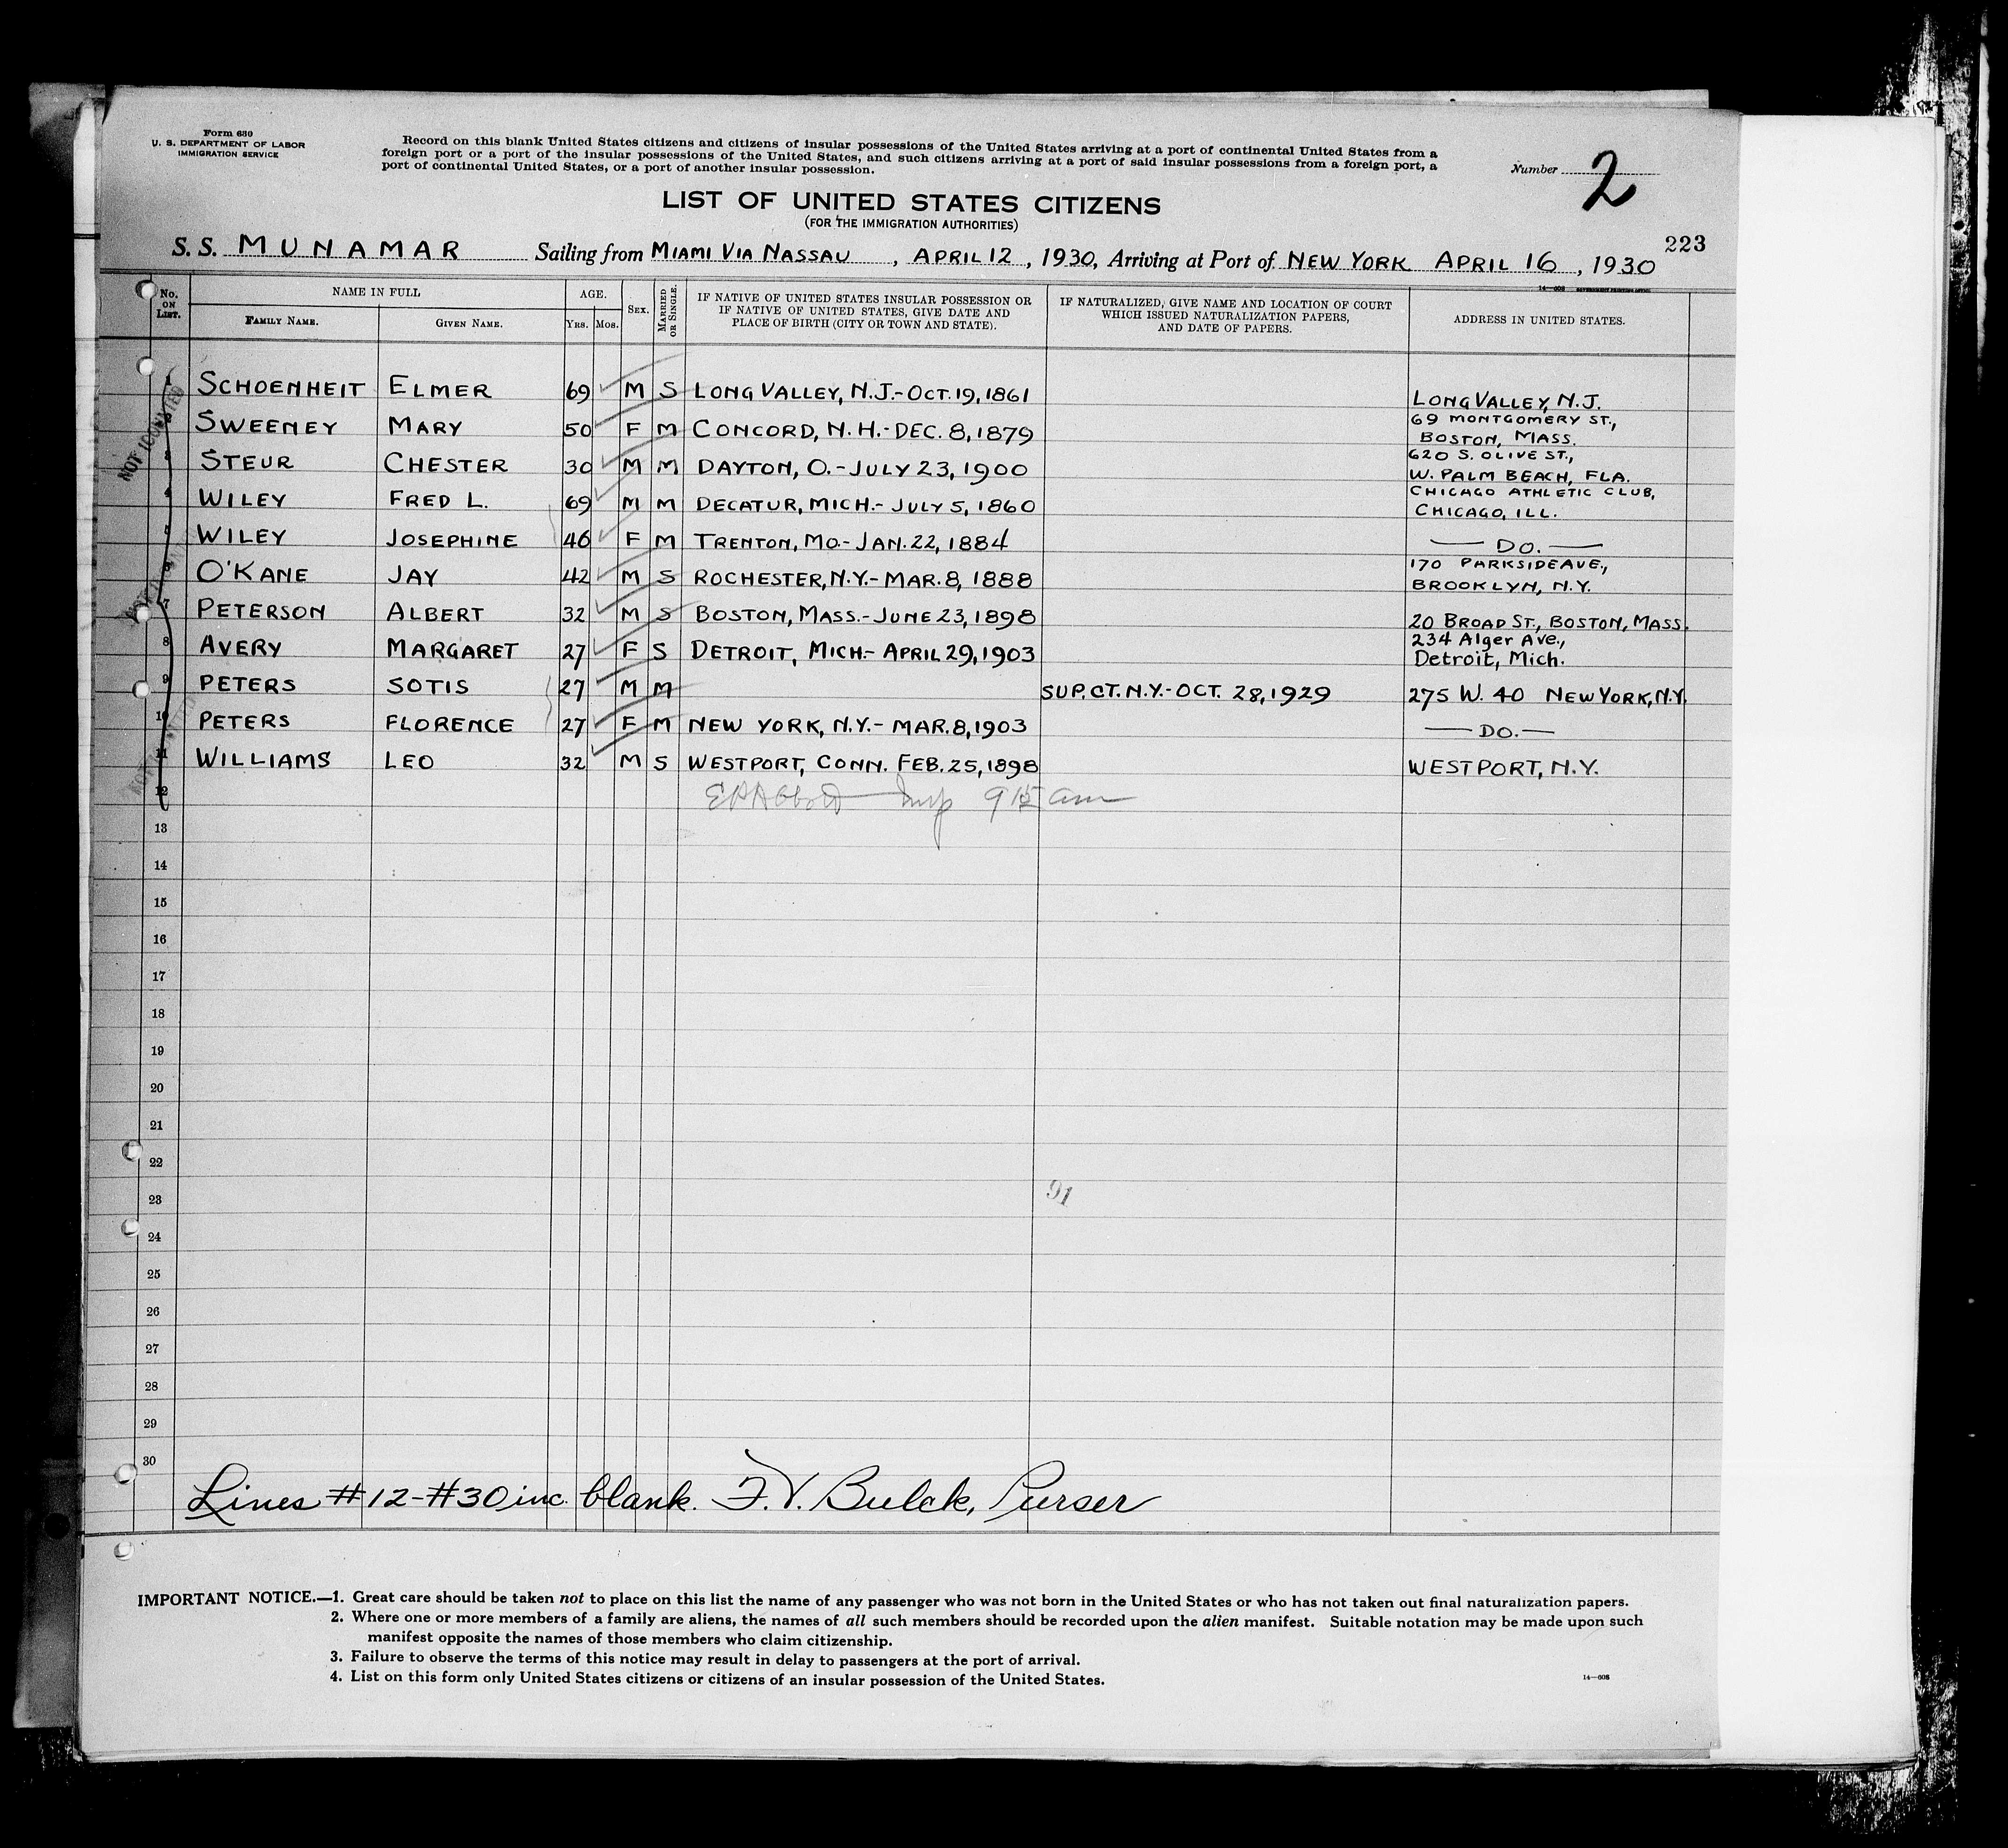 Form 630
U. S. DEPARTMENT OF LABOR
IMMIGRATION SERVICE
Record on this blank United States citizens and citizens of insular possessions of the United States arriving at a port of continental United States from a
foreign port or a port of the insular possessions of the United States, and such citizens arriving at a port of said insular possessions from a foreign port, a
port of continental United States, or a port of another insular possession.
Number 2
LIST OF UNITED STATES CITIZENS
(FOR THE IMMIGRATION AUTHORITIES)
223
S. S. MUNAMAR Sailing from MIAMI VIA NASSAU, APRIL 12, 1930, Arriving at Port of NEW YORK APRIL 16, 1930
14-608 GOVERNMENT PRINTING OFFICE
No. ON LIST. NAME IN FULL FAMILY NAME. GIVEN NAME. AGE. YRS. MOS. SEX. MARRIED OR SINGLE. IF NATIVE OF UNITED STATES INSULAR POSSESSION OR IF NATIVE OF UNITED STATES, GIVE DATE AND PLACE OF BIRTH (CITY OR TOWN AND STATE). IF NATURALIZED, GIVE NAME AND LOCATION OF COURT WHICH ISSUED NATURALIZATION PAPERS, AND DATE OF PAPERS. ADDRESS IN UNITED STATES.
1 SCHOENHEIT ELMER 69 M S LONG VALLEY, N.J.-OCT.19,1861 LONG VALLEY, N.J.
2 SWEENEY MARY 50 F M CONCORD, N.H.-DEC. 8,1879 69 MONTGOMERY ST., BOSTON, MASS.
3 STEUR CHESTER 30 M M DAYTON, O.-JULY 23, 1900 620 S. OLIVE ST., W. PALM BEACH, FLA.
4 WILEY FRED L. 69 M M DECATUR, MICH.- JULY 5, 1860 CHICAGO ATHLETIC CLUB, CHICAGO, ILL.
5 WILEY JOSEPHINE 46 F M TRENTON, MO.-JAN. 22, 1884 — DO. —
6 O'KANE JAY 42 M S ROCHESTER, N.Y.-MAR. 8, 1888 170 PARKSIDE AVE., BROOKLYN, N.Y.
7 PETERSON ALBERT 32 M S BOSTON, MASS.-JUNE 23, 1898 20 BROAD ST., BOSTON, MASS.
8 AVERY MARGARET 27 F S DETROIT, MICH.- APRIL 29, 1903 234 Alger Ave., Detroit, Mich.
9 PETERS SOTIS 27 M M SUP. CT. N.Y.-OCT. 28, 1929 275 W. 40 NEW YORK, N.Y.
10 PETERS FLORENCE 27 F M NEW YORK, N.Y.- MAR. 8, 1903 — DO. —
11 WILLIAMS LEO 32 M S WESTPORT, CONN. FEB. 25, 1898 WESTPORT, N.Y.
NOT
12 Insp 9 15 am
13
14
15
16
17
18
19
20
21
22
23 91
24
25
26
27
28
29
30
Lines #12-#30 inc. blank. F.V. Bulck, Purser
IMPORTANT NOTICE.—1. Great care should be taken not to place on this list the name of any passenger who was not born in the United States or who has not taken out final naturalization papers.
2. Where one or more members of a family are aliens, the names of all such members should be recorded upon the alien manifest. Suitable notation may be made upon such
manifest opposite the names of those members who claim citizenship.
3. Failure to observe the terms of this notice may result in delay to passengers at the port of arrival.
4. List on this form only United States citizens or citizens of an insular possession of the United States.
14-608